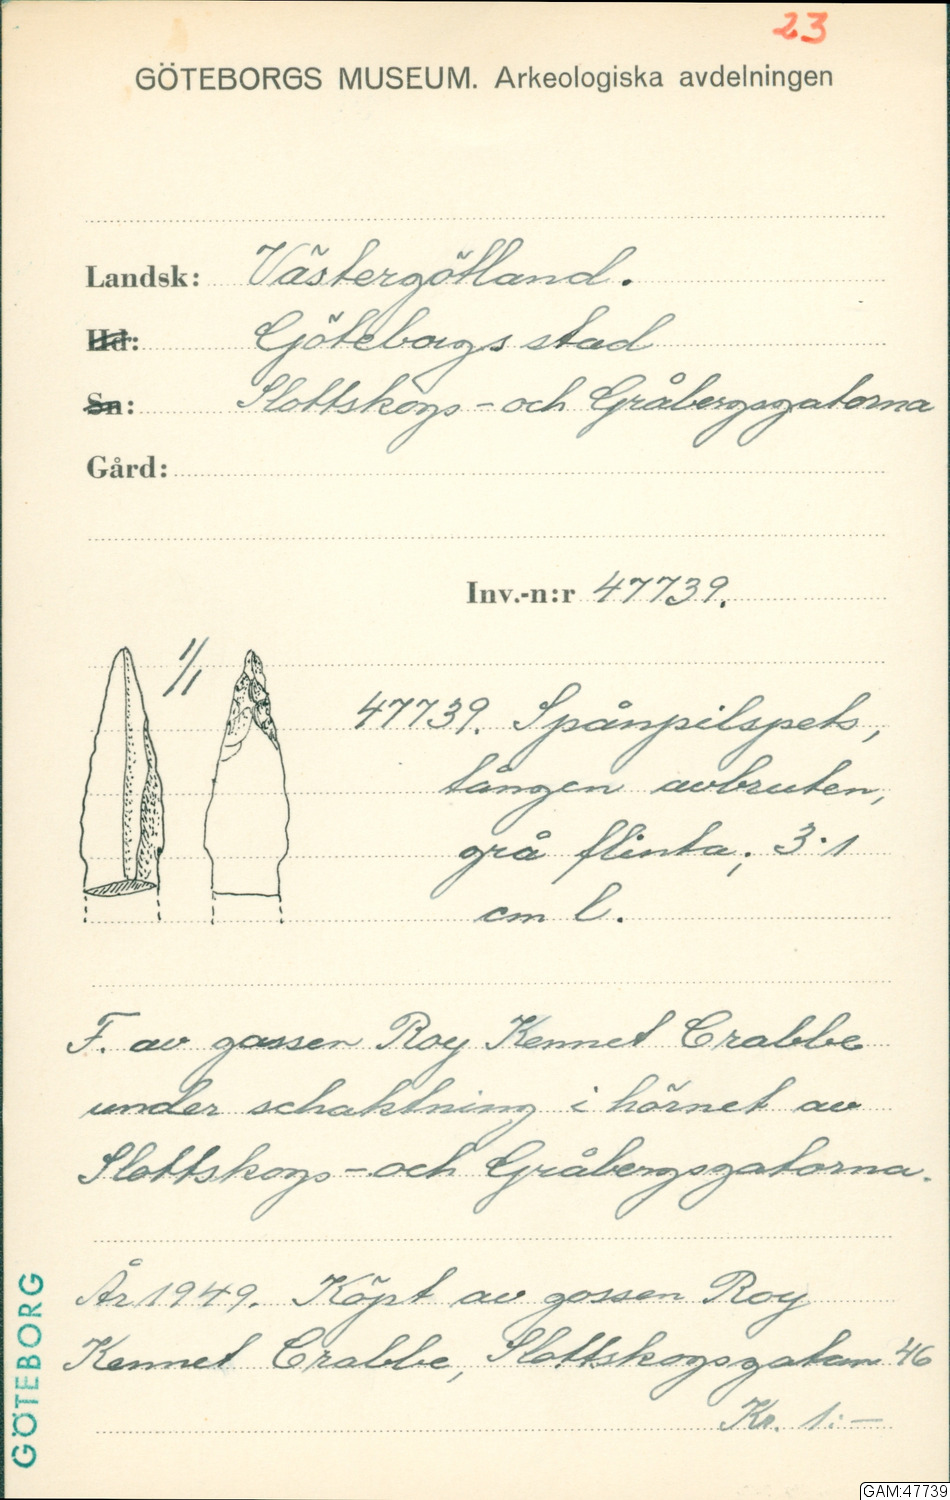 23
GÖTEBORGS MUSEUM. Arkeologiska avdelningen
Landsk: Västergötland.
Hd: Göteborgs stad
Sn: Slottskogs- och Gråbergsgatorna
Gård:
Inv.-n:r 47739.
1/1
47739. Spånpilspets,
tången avbruten,
grå flinta; 3.1
cm l.
F. av gossen Roy Kennet Crabbe
under schaktning i hörnet av
Slottskogs- och Gråbergsgatorna.
År 1949. Köpt av gossen Roy
Kennet Crabbe, Slottskogsgatan 46
Kr. 1:—
GÖTEBORG
GAM:47739